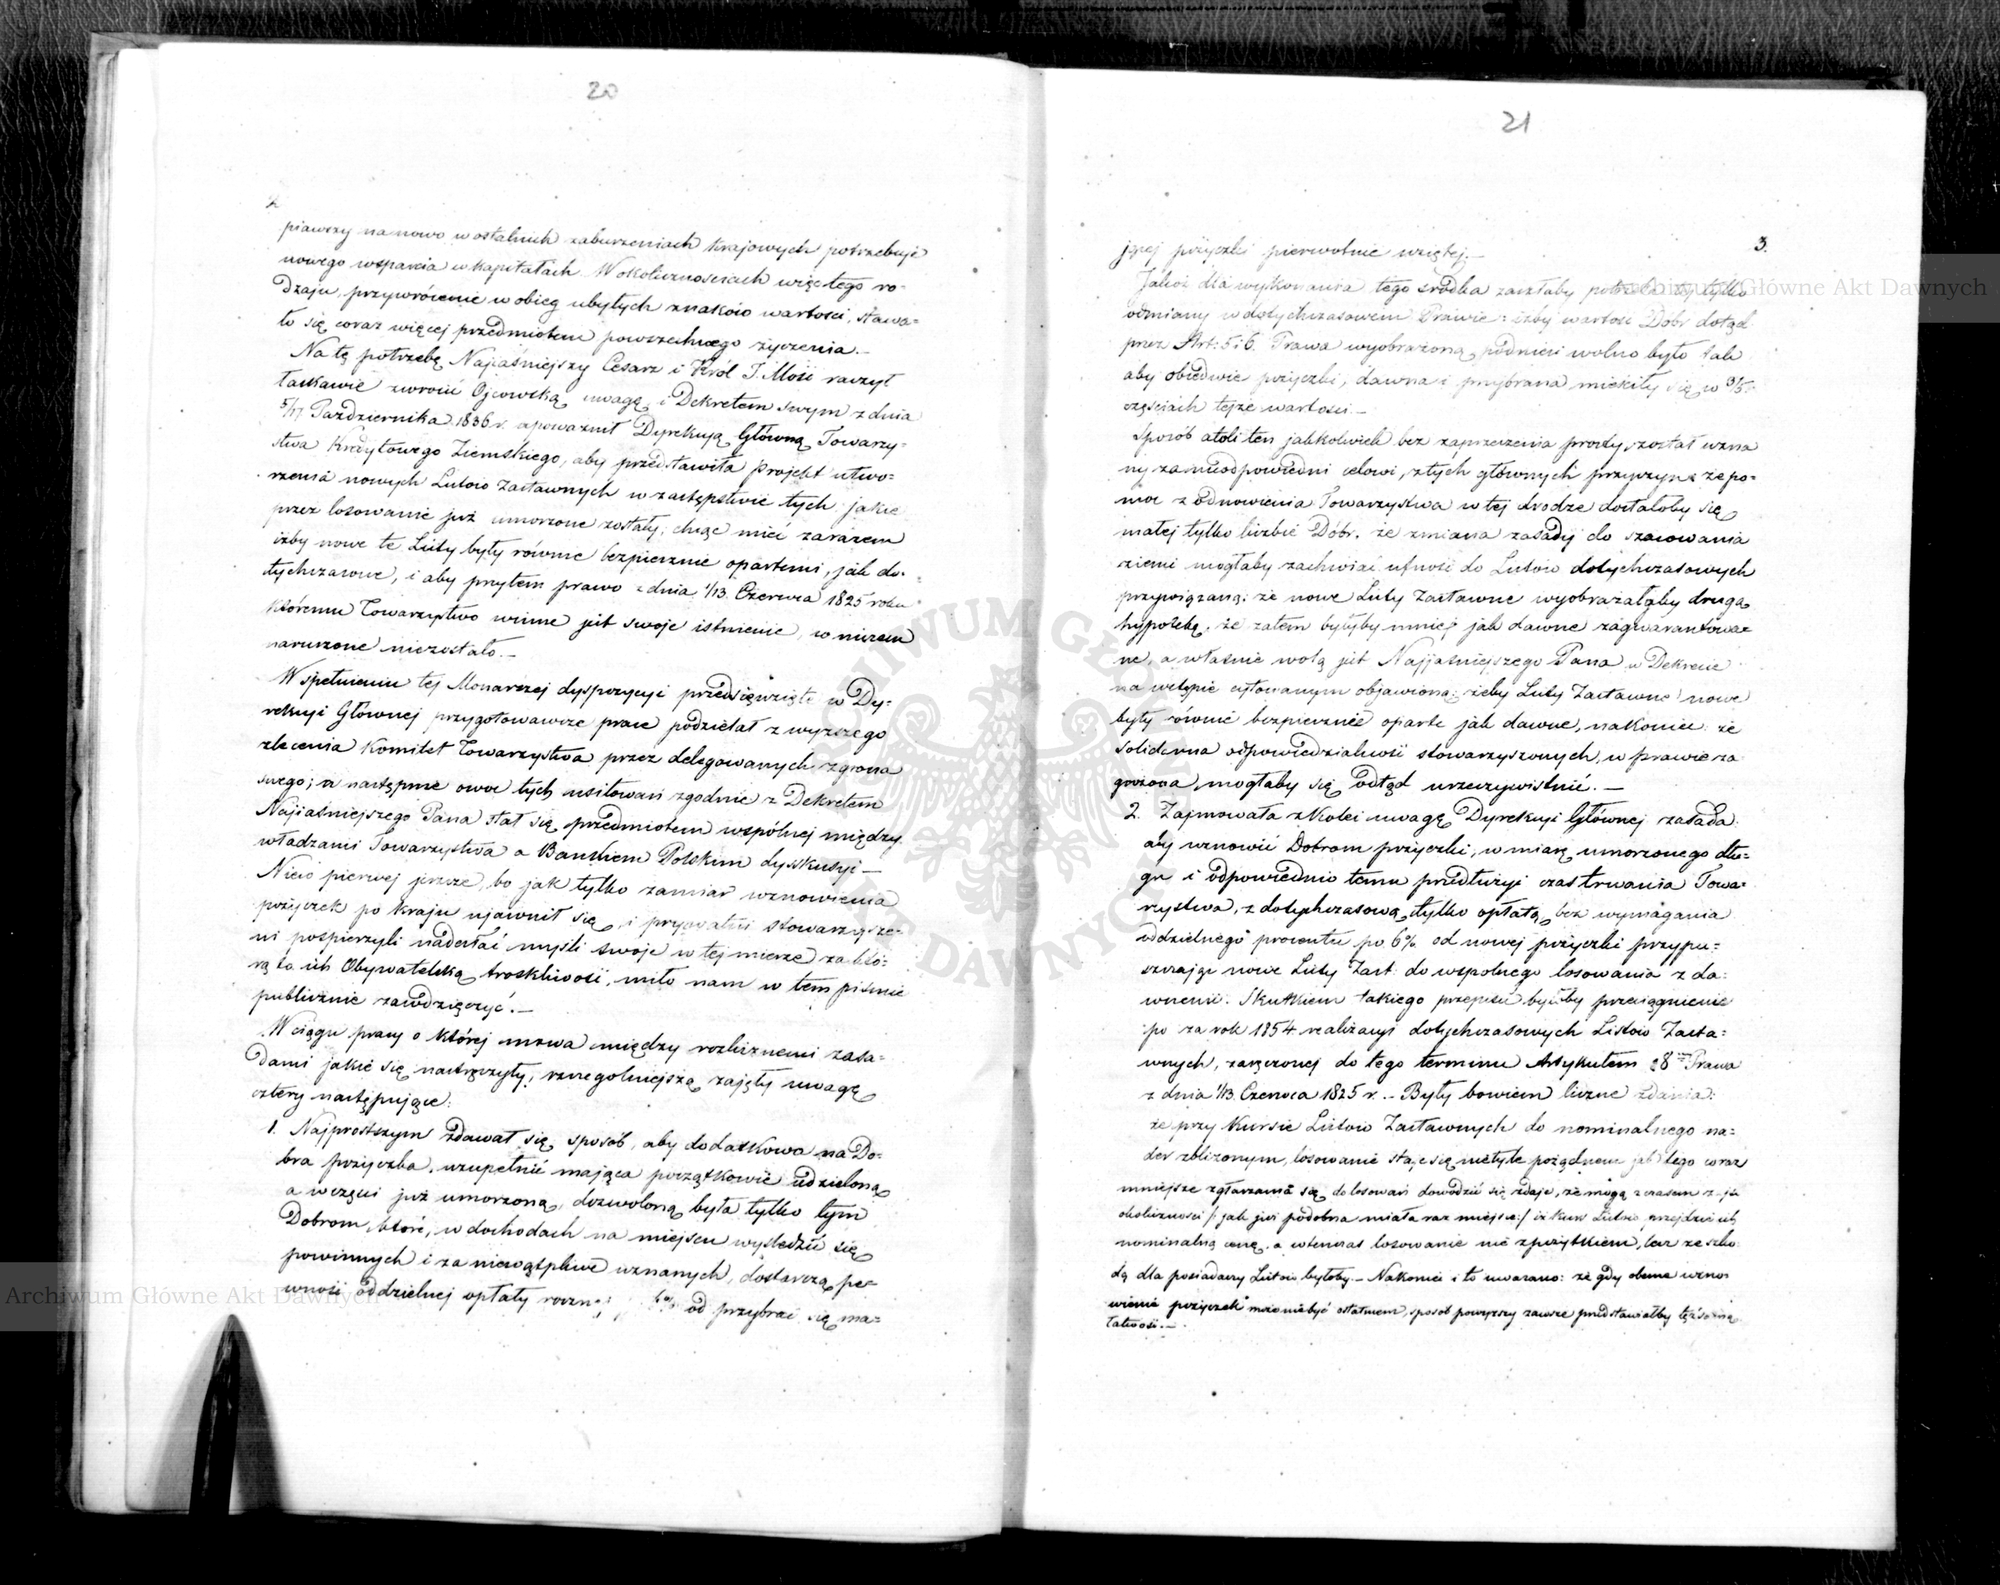 20
2
piawszy na nowo w ostatnich zaburzeniach krajowych potrzebuje
nowego wsparcia w kapitałach. W okolicznościach więc tego ro-
dzaju, przywrócenie w obieg ubyłych znaków wartości, stawa-
ło się coraz więcej przedmiotem powszechnego życzenia.—
Na tę potrzebę Najjaśniejszy Cesarz i Król J. Mość raczył
łaskawie zwrócić Ojcowską uwagę, i Dekretem swym z dnia
5/17 Października 1836 r. upoważnił Dyrekcją Główną Towarzy-
stwa Kredytowego Ziemskiego, aby przedstawiła projekt utwo-
rzenia nowych Listów Zastawnych w zastępstwie tych, jakie
przez losowanie już umorzone zostały; chcąc mieć zarazem
iżby nowe te Listy były równie bezpiecznie opartemi, jak do-
tychczasowe, i aby przytem prawo z dnia 1/13 Czerwca 1825 roku
któremu Towarzystwo winne jest swoje istnienie, w niczem
naruszone niezostało.—
W spełnieniu tej Monarszej dyspozycyi przedsięwzięte w Dy-
rekcyi Głównej przygotowawcze prace podzielał z wyższego
zlecenia Komitet Towarzystwa przez delegowanych z grona
swego; a następnie owoc tych usiłowań zgodnie z Dekretem
Najjaśniejszego Pana stał się przedmiotem wspólnej między
władzami Towarzystwa a Bankiem Polskim dyskusyi—
Nieco pierwej jeszcze, bo jak tylko zamiar wznowienia
pożyczek po kraju ujawnił się, i prywatni stowarzysze-
ni pospieszyli nadesłać myśli swoje w tej mierze za któ-
rą to ich Obywatelską troskliwość, miło nam w tem piśmie
publicznie zawdzięczyć.—
W ciągu pracy o której mowa między rozlicznemi zasa-
dami jakie się nastręczyły, szczególniejszą zajęły uwagę
cztery następujące:
1. Najprostszym zdawał się sposób, aby dodatkowa na Do-
bra pożyczka, uzupełnić mająca początkowie udzieloną
a w części już umorzoną, dozwoloną była tylko tym
Dobrom, które, w dochodach na miejscu wyśledzić się
powinnych i za niewątpliwe uznanych, dostarczą pe-
wność oddzielnej opłaty roczn 6% od przybrać się ma-
21
3.
jącej pożyczki pierwotnie wziętej.—
Jakoż dla wykonania tego środka zaszłaby potrzeba tylko
odmiany w dotychczasowem Prawie: iżby wartość Dóbr dotąd
przez Art: 5 i 6. Prawa wyobrażoną, podnieść wolno było tak
aby obiedwie pożyczki, dawna i przybrana mieściły się w 3/5
częściach tejże wartości.—
Sposób atoli ten jakkolwiek bez zaprzeczenia prosty, został uzna
ny za nieodpowiedni celowi, z tych głównych przyczyn: że po-
moc z odnowienia Towarzystwa w tej drodze dostałoby się
małej tylko liczbie Dóbr. że zmiana zasady do szacowania
ziemi mogłaby zachwiać ufność do Listów dotychczasowych
przywiązaną; że nowe Listy Zastawne wyobrażałyby drugą
hypotekę. że zatem byłyby mniej jak dawne zagwarantowa-
ne, a właśnie wolą jest Najjaśniejszego Pana w Dekrecie
na wstępie cytowanym objawioną; żeby Listy Zastawne nowe
były równie bezpiecznie oparte jak dawne, nakoniec że
solidarna odpowiedzialność stowarzyszonych, w prawie za
grożona, mogłaby się odtąd urzeczywistnić.—
2. Zajmowała z kolei uwagę Dyrekcyi Głównej zasada
aby wznowić Dobrom pożyczki, w miarę umorzonego dłu-
gu i odpowiednio temu przedłużyć czas trwania Towa-
rzystwa, z dotychczasową tylko opłatą, bez wymagania
oddzielnego procentu po 6% od nowej pożyczki przypu-
szczając nowe Listy Zast: do wspólnego losowania z da-
wnemi. Skutkiem takiego przepisu byłoby przeciągnienie
po za rok 1854 realizacyi dotychczasowych Listów Zasta-
wnych, zaręczonej do tego terminu Artykułem 28 Prawa
z dnia 1/13 Czerwca 1825 r.— Były bowiem liczne zdania:
że przy kursie Listów Zastawnych do nominalnego na-
der zbliżonym, losowanie staje się nietyle pożądanem jak tego coraz
mniejsze zgłaszania się do losowań dowodzić się zdaje, że mogą z czasem
okoliczności /: jak już podobna miała raz miejsce:/ iż kurs Listów przejdzie ich
nominalną cenę, a wtenczas losowanie nie z pożytkiem, lecz ze szko-
dą dla posiadaczy Listów byłoby.— Nakoniec i to uważano: że gdy obecne wzno
wienie pożyczek może niebyć ostatniem, sposób powyższy zawsze przedstawiałby tęż samą
łatwość.—
ARCHIWUM GŁÓWNE AKT DAWNYCH
Archiwum Główne Akt Dawnych
Archiwum Główne Akt Dawnych